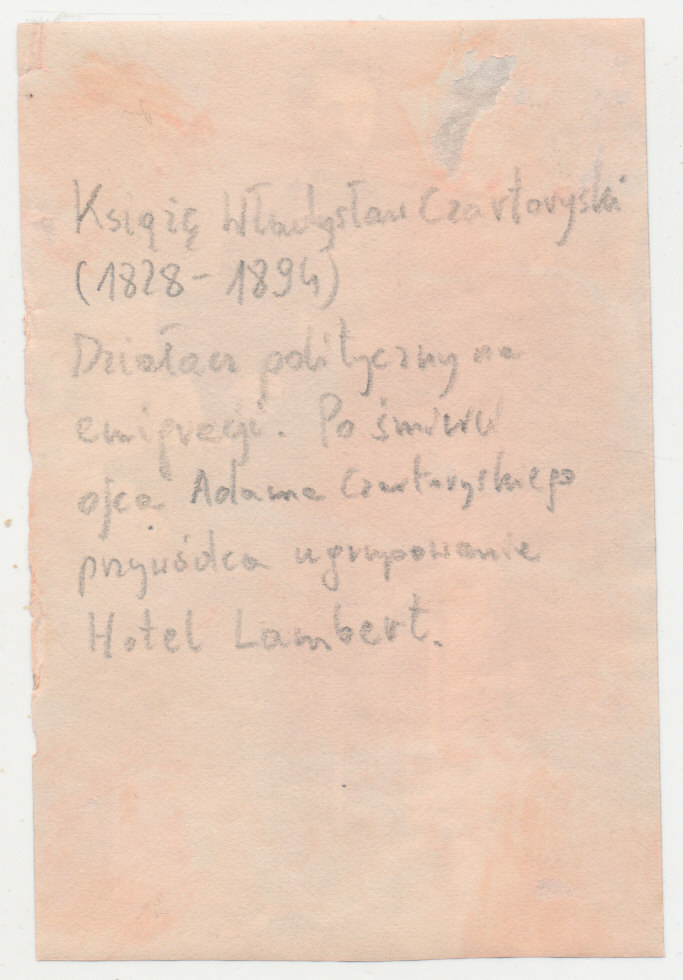 Książę Władysław Czartoryski
(1828-1894)
Działacz polityczny na
emigracji. Po śmierci
ojca Adama Czartoryskiego
przywódca ugrupowania
Hotel Lambert.